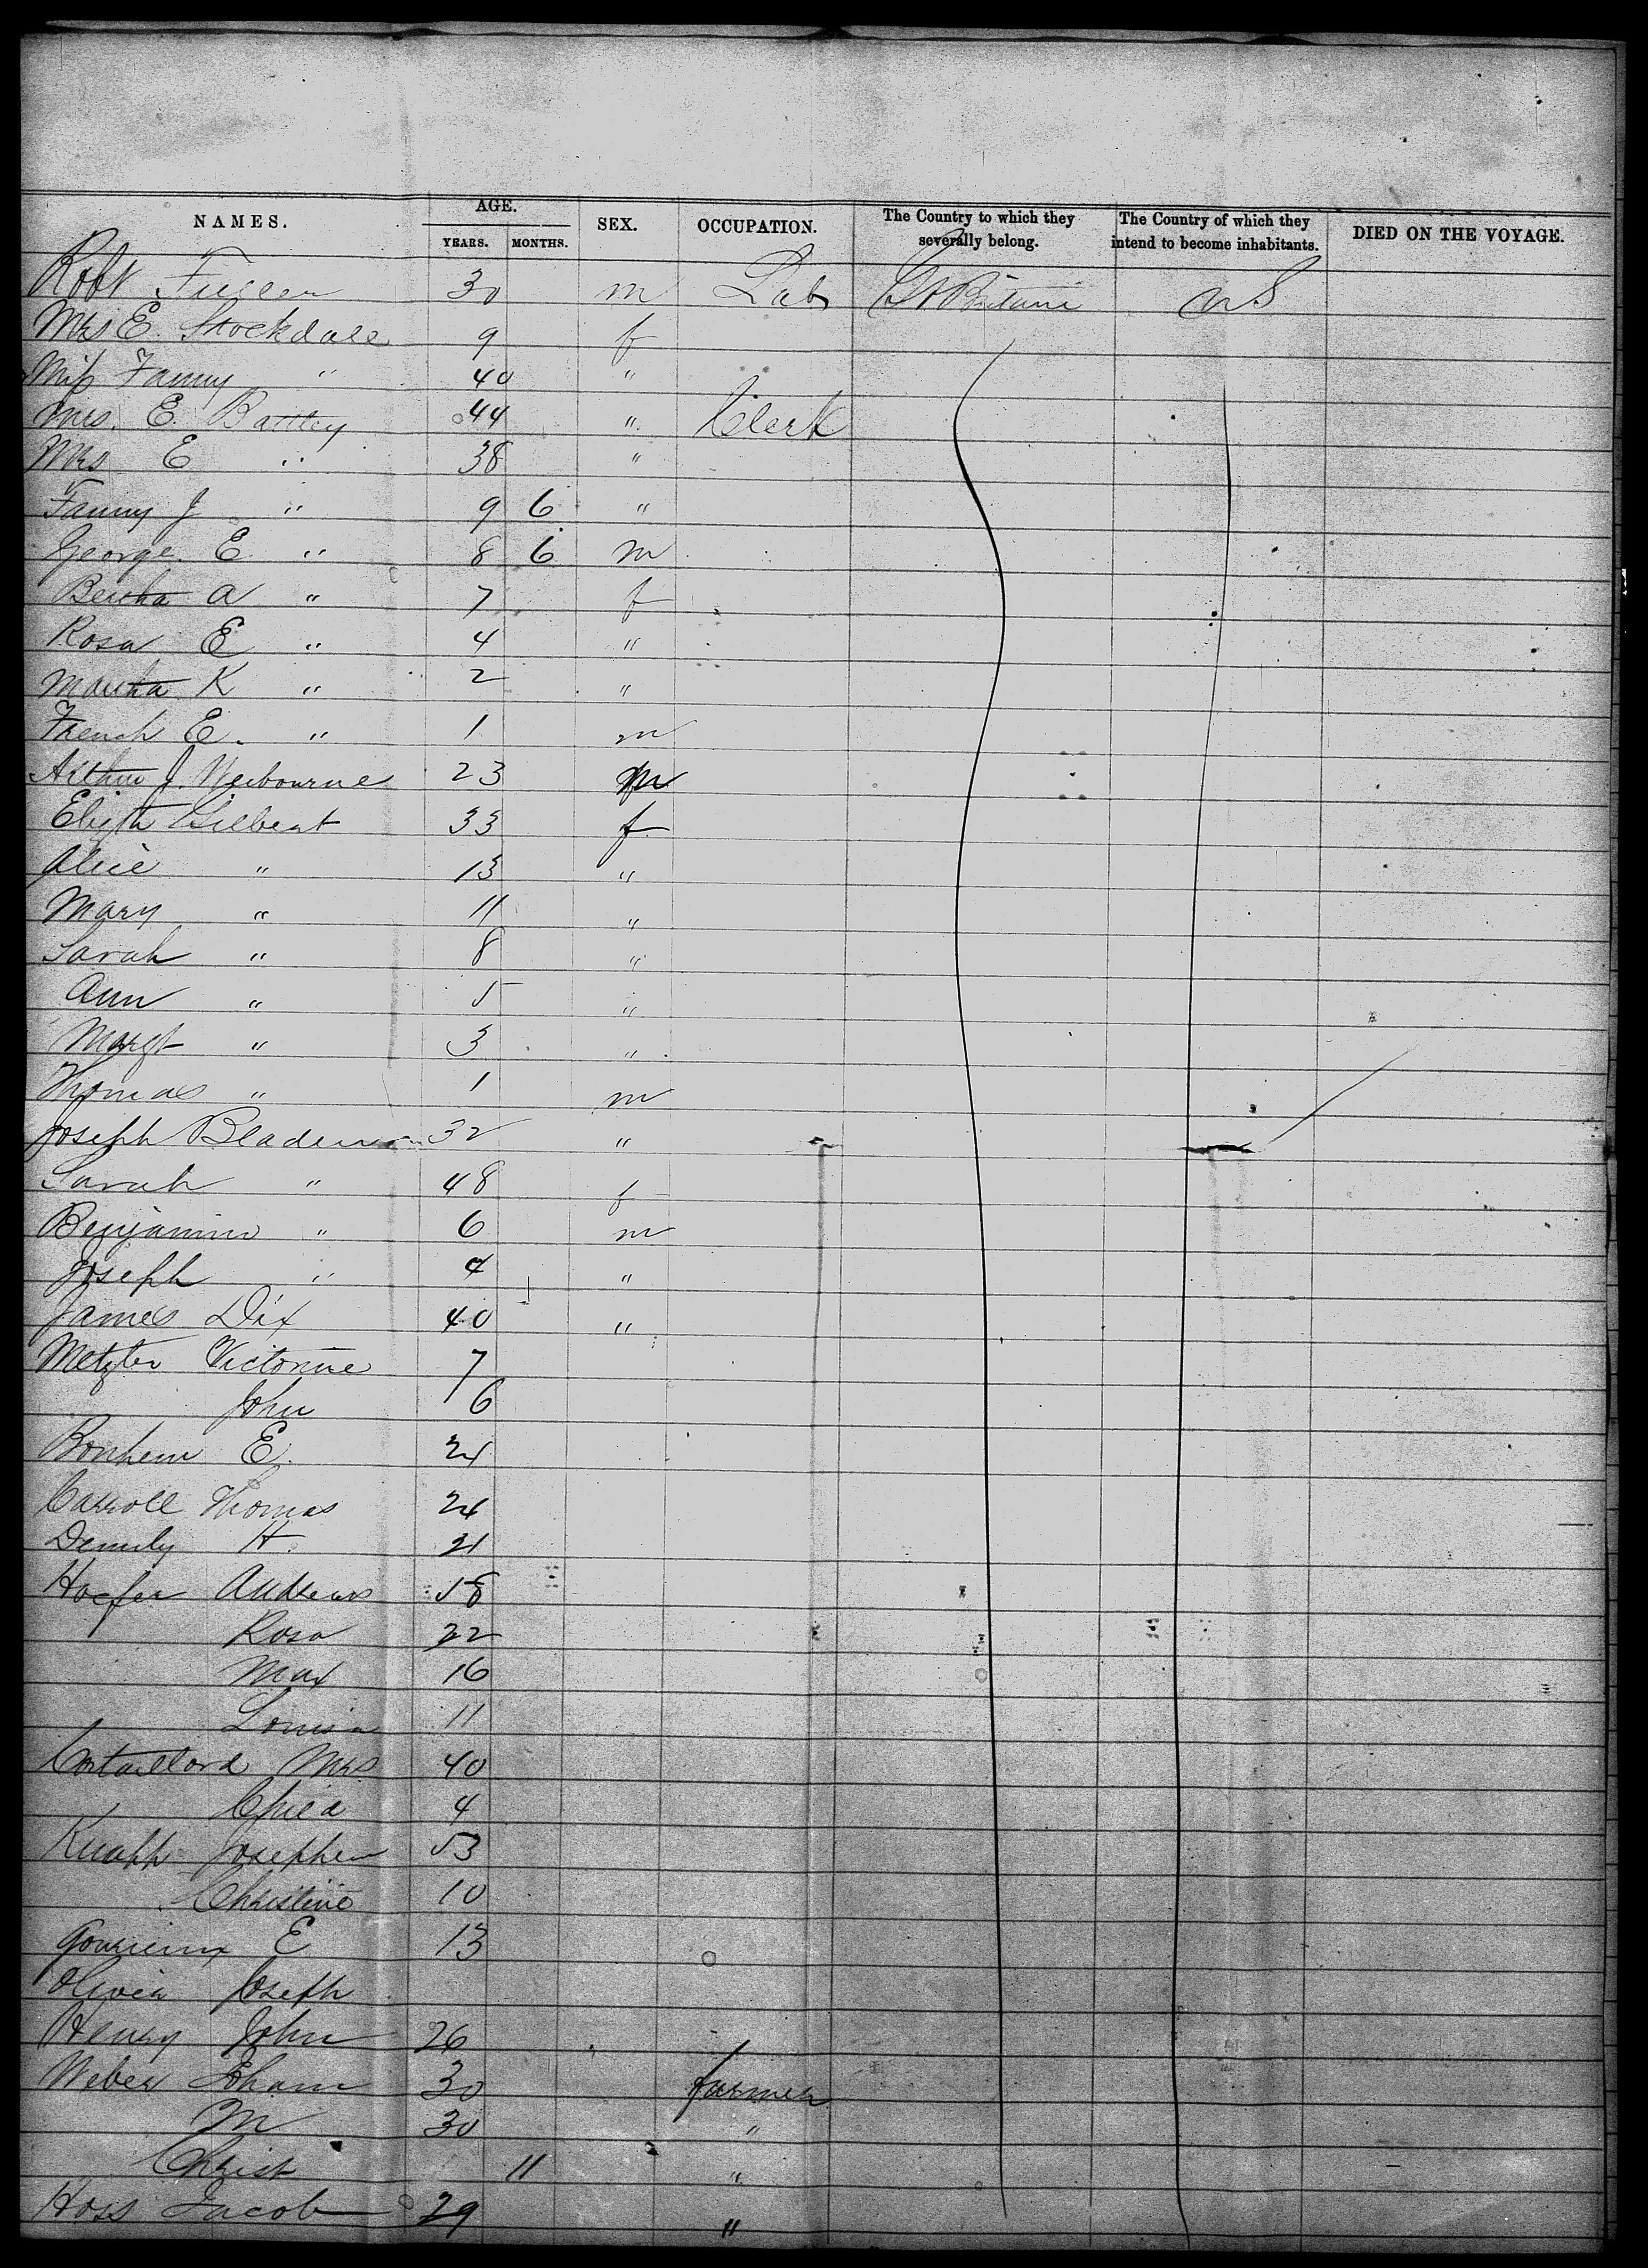 NAMES. AGE. SEX. OCCUPATION. The Country to which they severally belong. The Country of which they intend to become inhabitants. DIED ON THE VOYAGE.
YEARS. MONTHS.
Robt 30 m Lab Gt Britain U S
Mrs E. Stockdale 9 f
Miss Fanny " 40 "
Mrs. E. Battley 44 " Clerk
Mrs E " 38 "
Fanny J " 9 6 "
George E " 8 6 m
Bertha A " 7 f
Rosa E " 4 "
Martha K " 2 "
French E. " 1 m
Arthur J. Weibourne 23 m
Elizth Gilbert 33 f
Alice " 13 "
Mary " 11 "
Sarah " 8 "
Ann " 5 "
Margt " 3 "
Thomas " 1 m
Joseph 32 "
Sarah " 48 f
Benjamin " 6 m
Joseph " 4 "
James Dix 40 "
Metzler Victorine 7
John 6
Bonheur E.
Carroll Thomas 24
H. 21
Hoefer Andreas 58
Rosa 22
Max 16
Louisa 11
Mrs 40
Child 4
Knapp Josephen 53
Christine 10
E 13
Joseph
Henry John 26
Weber Johann 30 farmer
M 30 "
Christ 11 "
Hoss Jacob 29 "